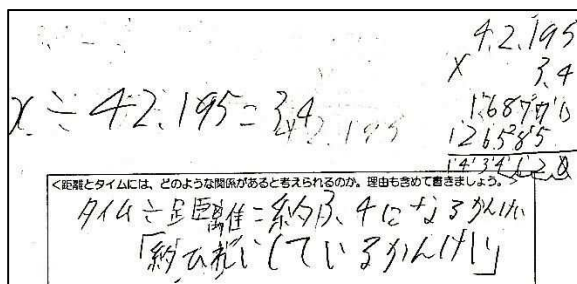 x÷42.195=3.4
42.195
× 3.4
168780
126585
143412.0
<距離とタイムには、どのような関係があると考えられるのか。理由も含めて書きましょう。>
タイム÷距離=約3.4になるかんけい
「約ひれいしているかんけい」